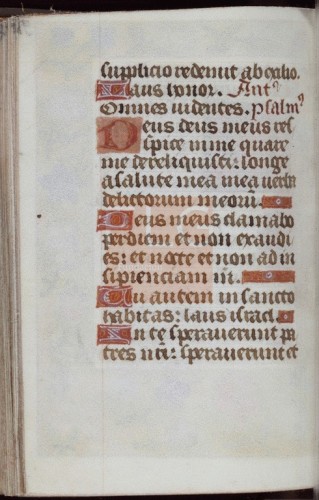 supplicio redemit ab exilio.
Laus honor. Ant
Omnes videntes. psalm
Deus deus meus res
pice in me quare
me dereliquisti: longe
a salute mea mea verba
delictorum meoru.
Deus meus clamabo
per diem et non exaudi
es: et nocte et non ad in
sipienciam m.
Tu autem in sancto
habitas: laus israel.
In te speraverunt pa
tres nri: speraverunt et